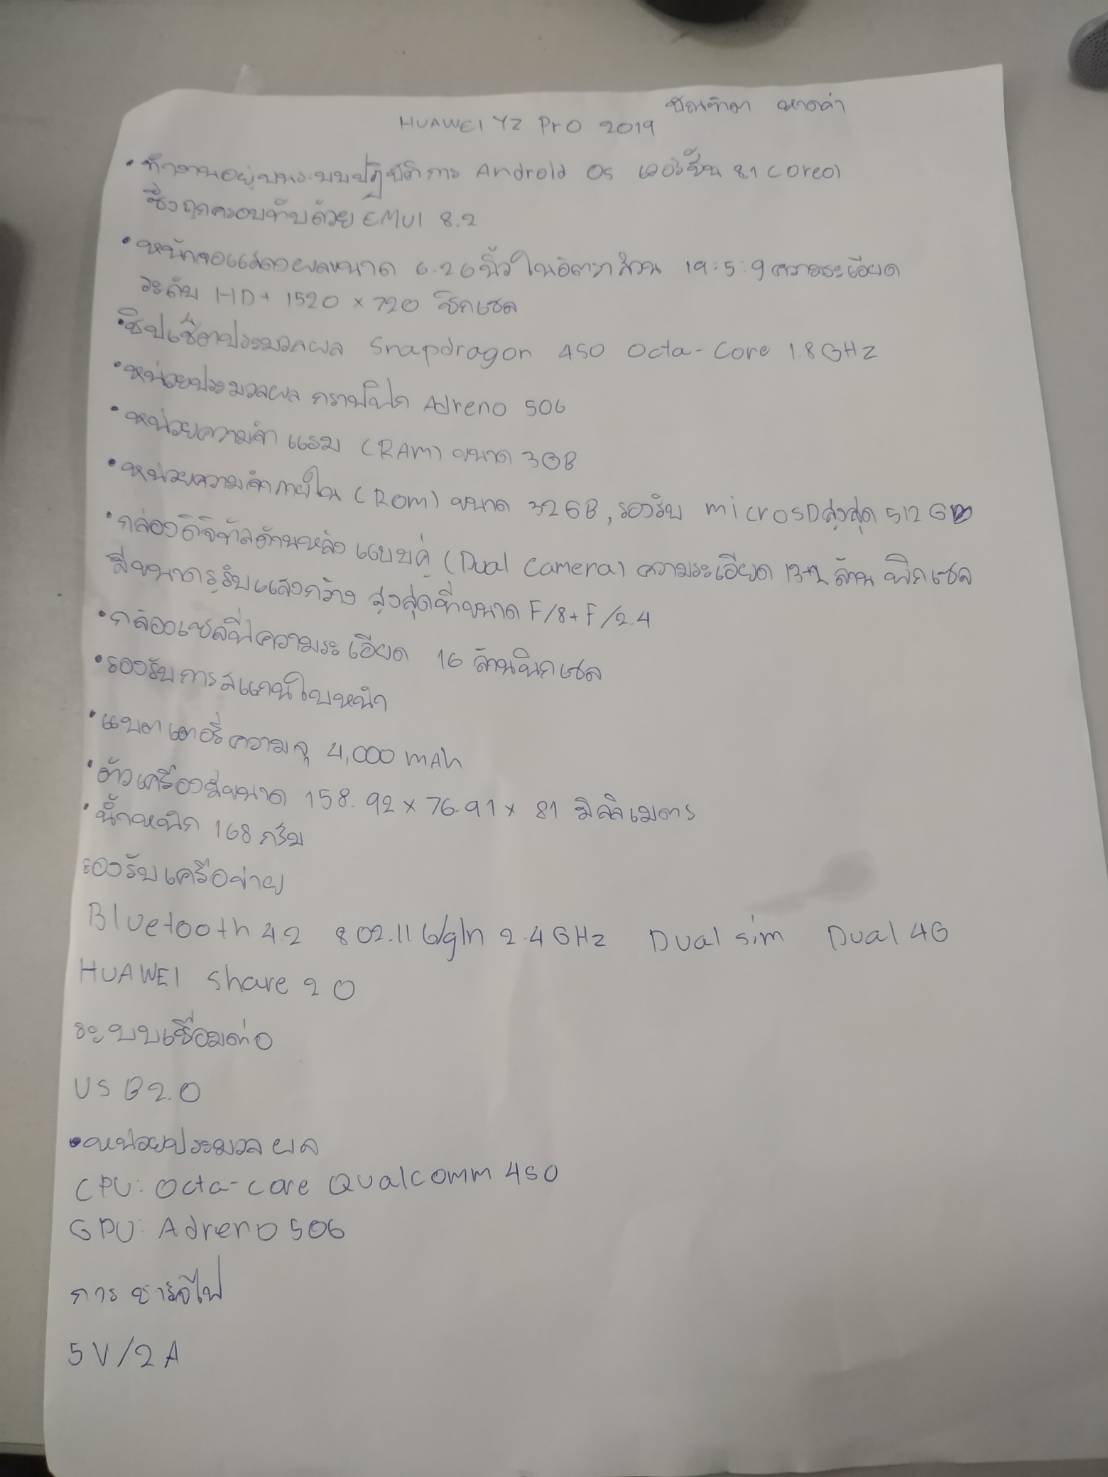 HUAWEI Y7 Pro 2019
• ทำงานอยู่บนระบบปฏิบัติการ Android Os เวอร์ชั่น 8.1 (oreo)
ซึ่งถูกครอบทับด้วย EMUI 8.2
• หน้าจอแสดงผลขนาด 6.26 นิ้ว ในอัตราส่วน 19:5:9 ความละเอียด
ระดับ HD+ 1520 × 720 พิกเซล
• ชิปเซ็ตประมวลผล Snapdragon 450 Octa-Core 1.8 GHz
• หน่วยประมวลผล กราฟฟิก Adreno 506
• หน่วยความจำ แรม (RAM) ขนาด 3GB
• หน่วยความจำภายใน (ROM) ขนาด 32GB, รองรับ microSD สูงสุด 512 GB
• กล้องดิจิทัลด้านหลัง แบบคู่ (Dual Camera) ความละเอียด 13+2 ล้าน พิกเซล
มีขนาดรูรับแสงกว้าง สูงสุดที่ขนาด F/8+F/2.4
• กล้องเซลฟี่ความละเอียด 16 ล้านพิกเซล
• รองรับการสแกนใบหน้า
• แบตเตอรี่ความจุ 4,000 mAh
• ตัวเครื่องมีขนาด 158.92 × 76.91 × 81 มิลลิเมตร
• น้ำหนัก 168 กรัม
รองรับเครือข่าย
Bluetooth 4.2 802.11 b/g/n 2.4 GHz Dual sim Dual 4G
HUAWEI Share 2 0
ระบบเชื่อมต่อ
USB 2.0
• หน่วยประมวลผล
CPU: Octa-core Qualcomm 450
GPU: Adreno 506
การชาร์จไฟ
5V/2A